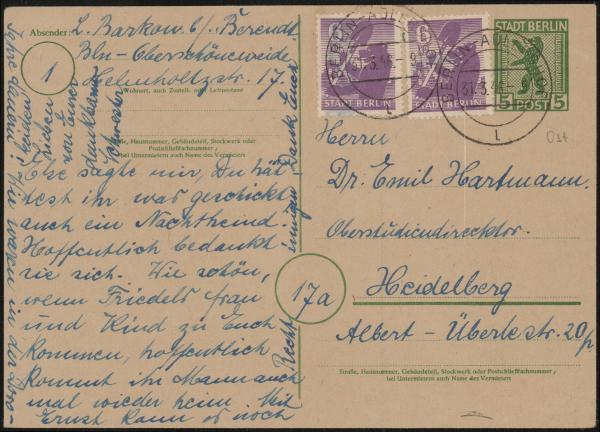 Absender: L. Barkow b/. Berendt
Bln-Oberschöneweide
1 Helmholtzstr. 17.
Wohnort, auch Zustell- oder Leitpostamt
Straße, Hausnummer, Gebäudeteil, Stockwerk oder
Postschließfachnummer;
bei Untermietern auch Name des Vermieters
Else sagte mir, Du hät-
test ihr was geschickt
auch ein Nachthemd.
Hoffentlich bedankt
sie sich. Wie schön,
wenn Friedels Frau
und Kind zu Euch
kommen, hoffentlich
kommt ihr Mann auch
mal wieder heim. Mit
Ernst kann es noch
Recht innigen Dank Euch
lieben
von Eurer
dankbaren
Schwester
6
STADT BERLIN
6
STADT BERLIN
STADT BERLIN
5 POST 5
BERLIN-ADLE
31.3.46
l
BERLIN-ADL
31.3.46
l
Ost
Herrn
Dr. Emil Hartmann.
Oberstudiendirecktor.
17a Heidelberg
Albert-Überlestr. 20
Straße, Hausnummer, Gebäudeteil, Stockwerk oder Postschließfachnummer;
bei Untermietern auch Name des Vermieters